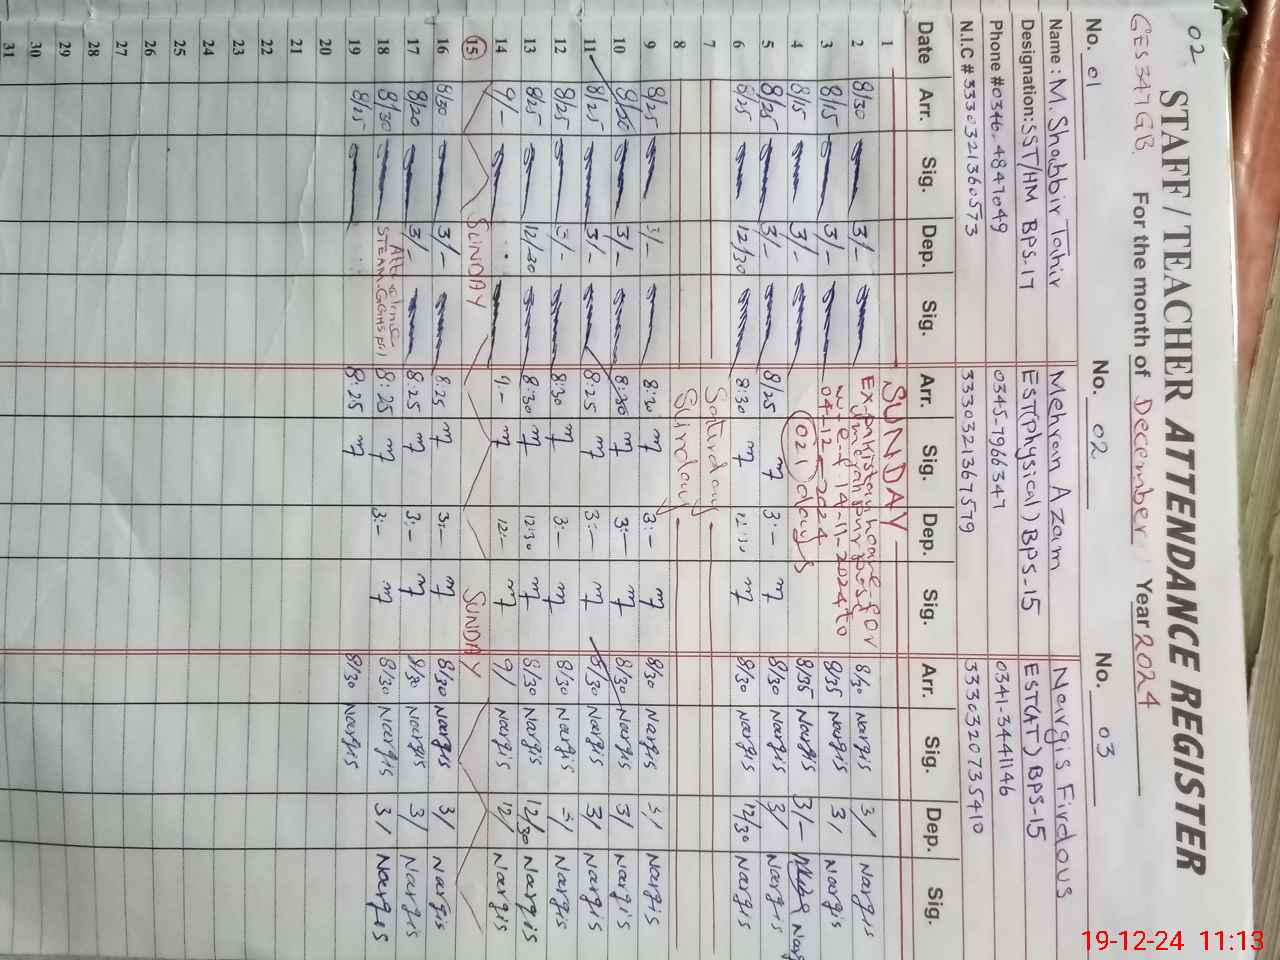 02
STAFF / TEACHER ATTENDANCE REGISTER
GES 347 GB. For the month of December Year 2024
No. 01 No. 02 No. 03
Name : M. Shabbir Tahir Mehran Azam Nargis Firdous
Designation: SST/HM BPS-17 EST(Physical) BPS-15 EST(AT) BPS-15
Phone #0346-4847049 0345-7966347 0341-3441146
N.I.C # 3330321360573 3330321367579 3330320735410
Date Arr. Sig. Dep. Sig. Arr. Sig. Dep. Sig. Arr. Sig. Dep. Sig.
1 SUNDAY
2 8/30 3/- Ex-Pakistan leave for 8/30 Nargis 3/ Nargis
3 8/15 3/- w.e.f 14-11-2024 to 8/35 Nargis 3/ Nargis
04-12-2024
4 8/15 3/- (021) days 8/35 Nargis 3/- Nar
5 8/25 3/- 8/25 m 3:- m 8/30 Nargis 3/ Nargis
6 8/25 12/30 8:30 m 12:30 m 8/30 Nargis 12/30 Nargis
7 Saturday
8 Sunday
9 8/25 3/- 8:30 m 3:- m 8/30 Nargis 3/ Nargis
10 8/20 3/- 8:30 m 3:- m 8/30 Nargis 3/ Nargis
11 8/25 3/- 8:25 m 3:- m 8/30 Nargis 3/ Nargis
12 8/25 3/- 8:30 m 3:- m 8/30 Nargis 3/ Nargis
13 8/25 12/30 8:30 m 12:30 m 8/30 Nargis 12/30 Nargis
14 9/- 9:- m 12:- m 9/ Nargis 12/ Nargis
15 SUNDAY SUNDAY
16 8/30 3/- 8:25 m 3:- m 8/30 Nargis 3/ Nargis
17 8/20 3/- 8:25 m 3:- m 8/30 Nargis 3/ Nargis
18 8/30 STEAM 8:25 m 3:- m 8/30 Nargis 3/ Nargis
19 8/15 8:25 m 8/30 Nargis
20
21
22
23
24
25
26
27
28
29
30
31
19-12-24 11:13